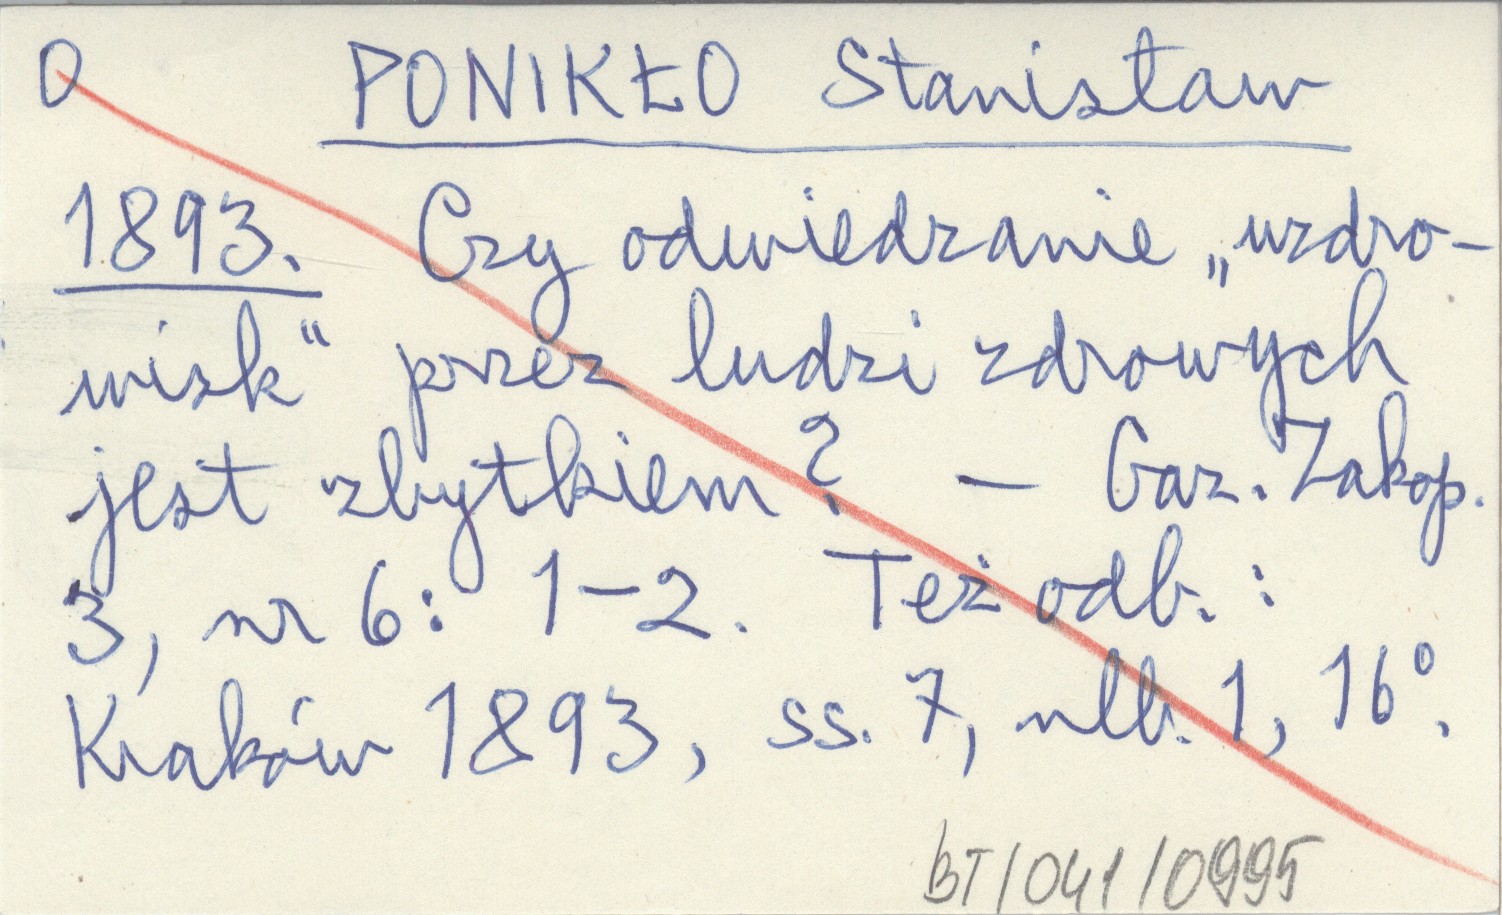 O PONIKŁO Stanisław
1893. Czy odwiedzanie „uzdro-
wisk" przez ludzi zdrowych
jest zbytkiem? — Gaz. Zakop.
3, nr 6: 1–2. Też odb.:
Kraków 1893, ss. 7, nlb. 1, 16°.
BT/041/0995